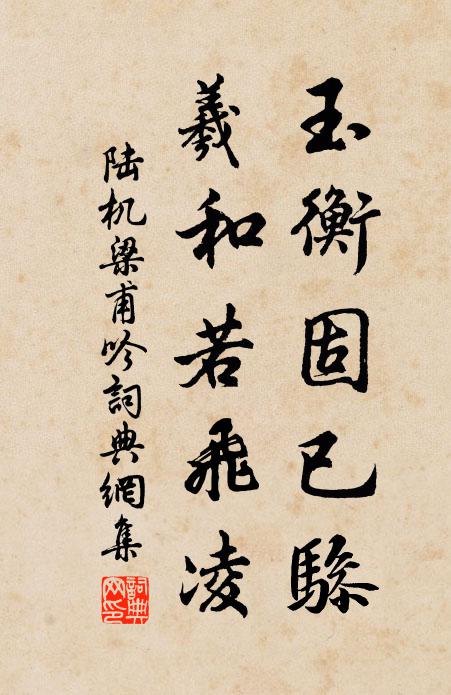 玉衡固已驂
羲和若飛凌
陆机梁甫吟詞典網集
詞典网印